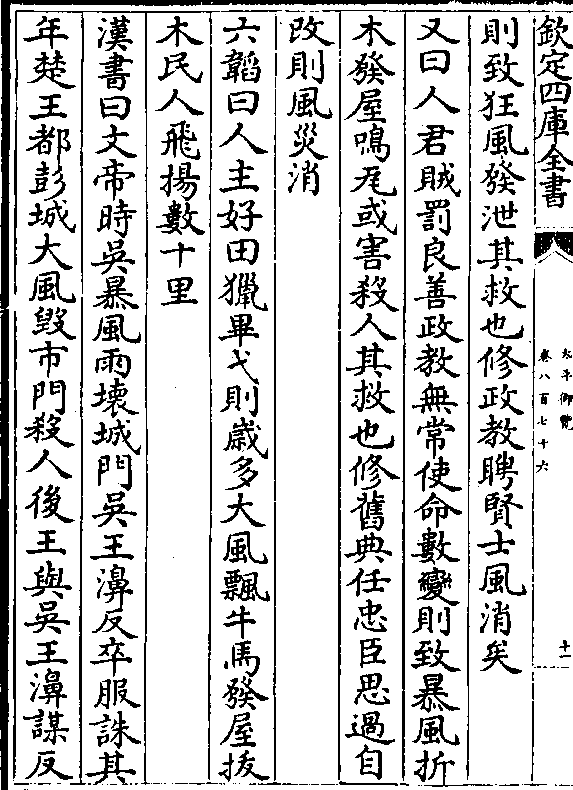 欽定四庫全書
太平御覽
卷八百七十六
十一
則致狂風發泄其救也修政教聘賢士風消矣
又曰人君賊罰良善政教無常使命數變則致暴風折
木發屋鳴瓦或害殺人其救也修舊典任忠臣思過自
改則風災消
六韜曰人主好田獵畢弋則嵗多大風飄牛馬發屋拔
木民人飛揚數十里
漢書曰文帝時吳暴風雨壊城門吳王濞反卒服誅其
年楚王都彭城大風毁市門殺人後王與吳王濞謀反